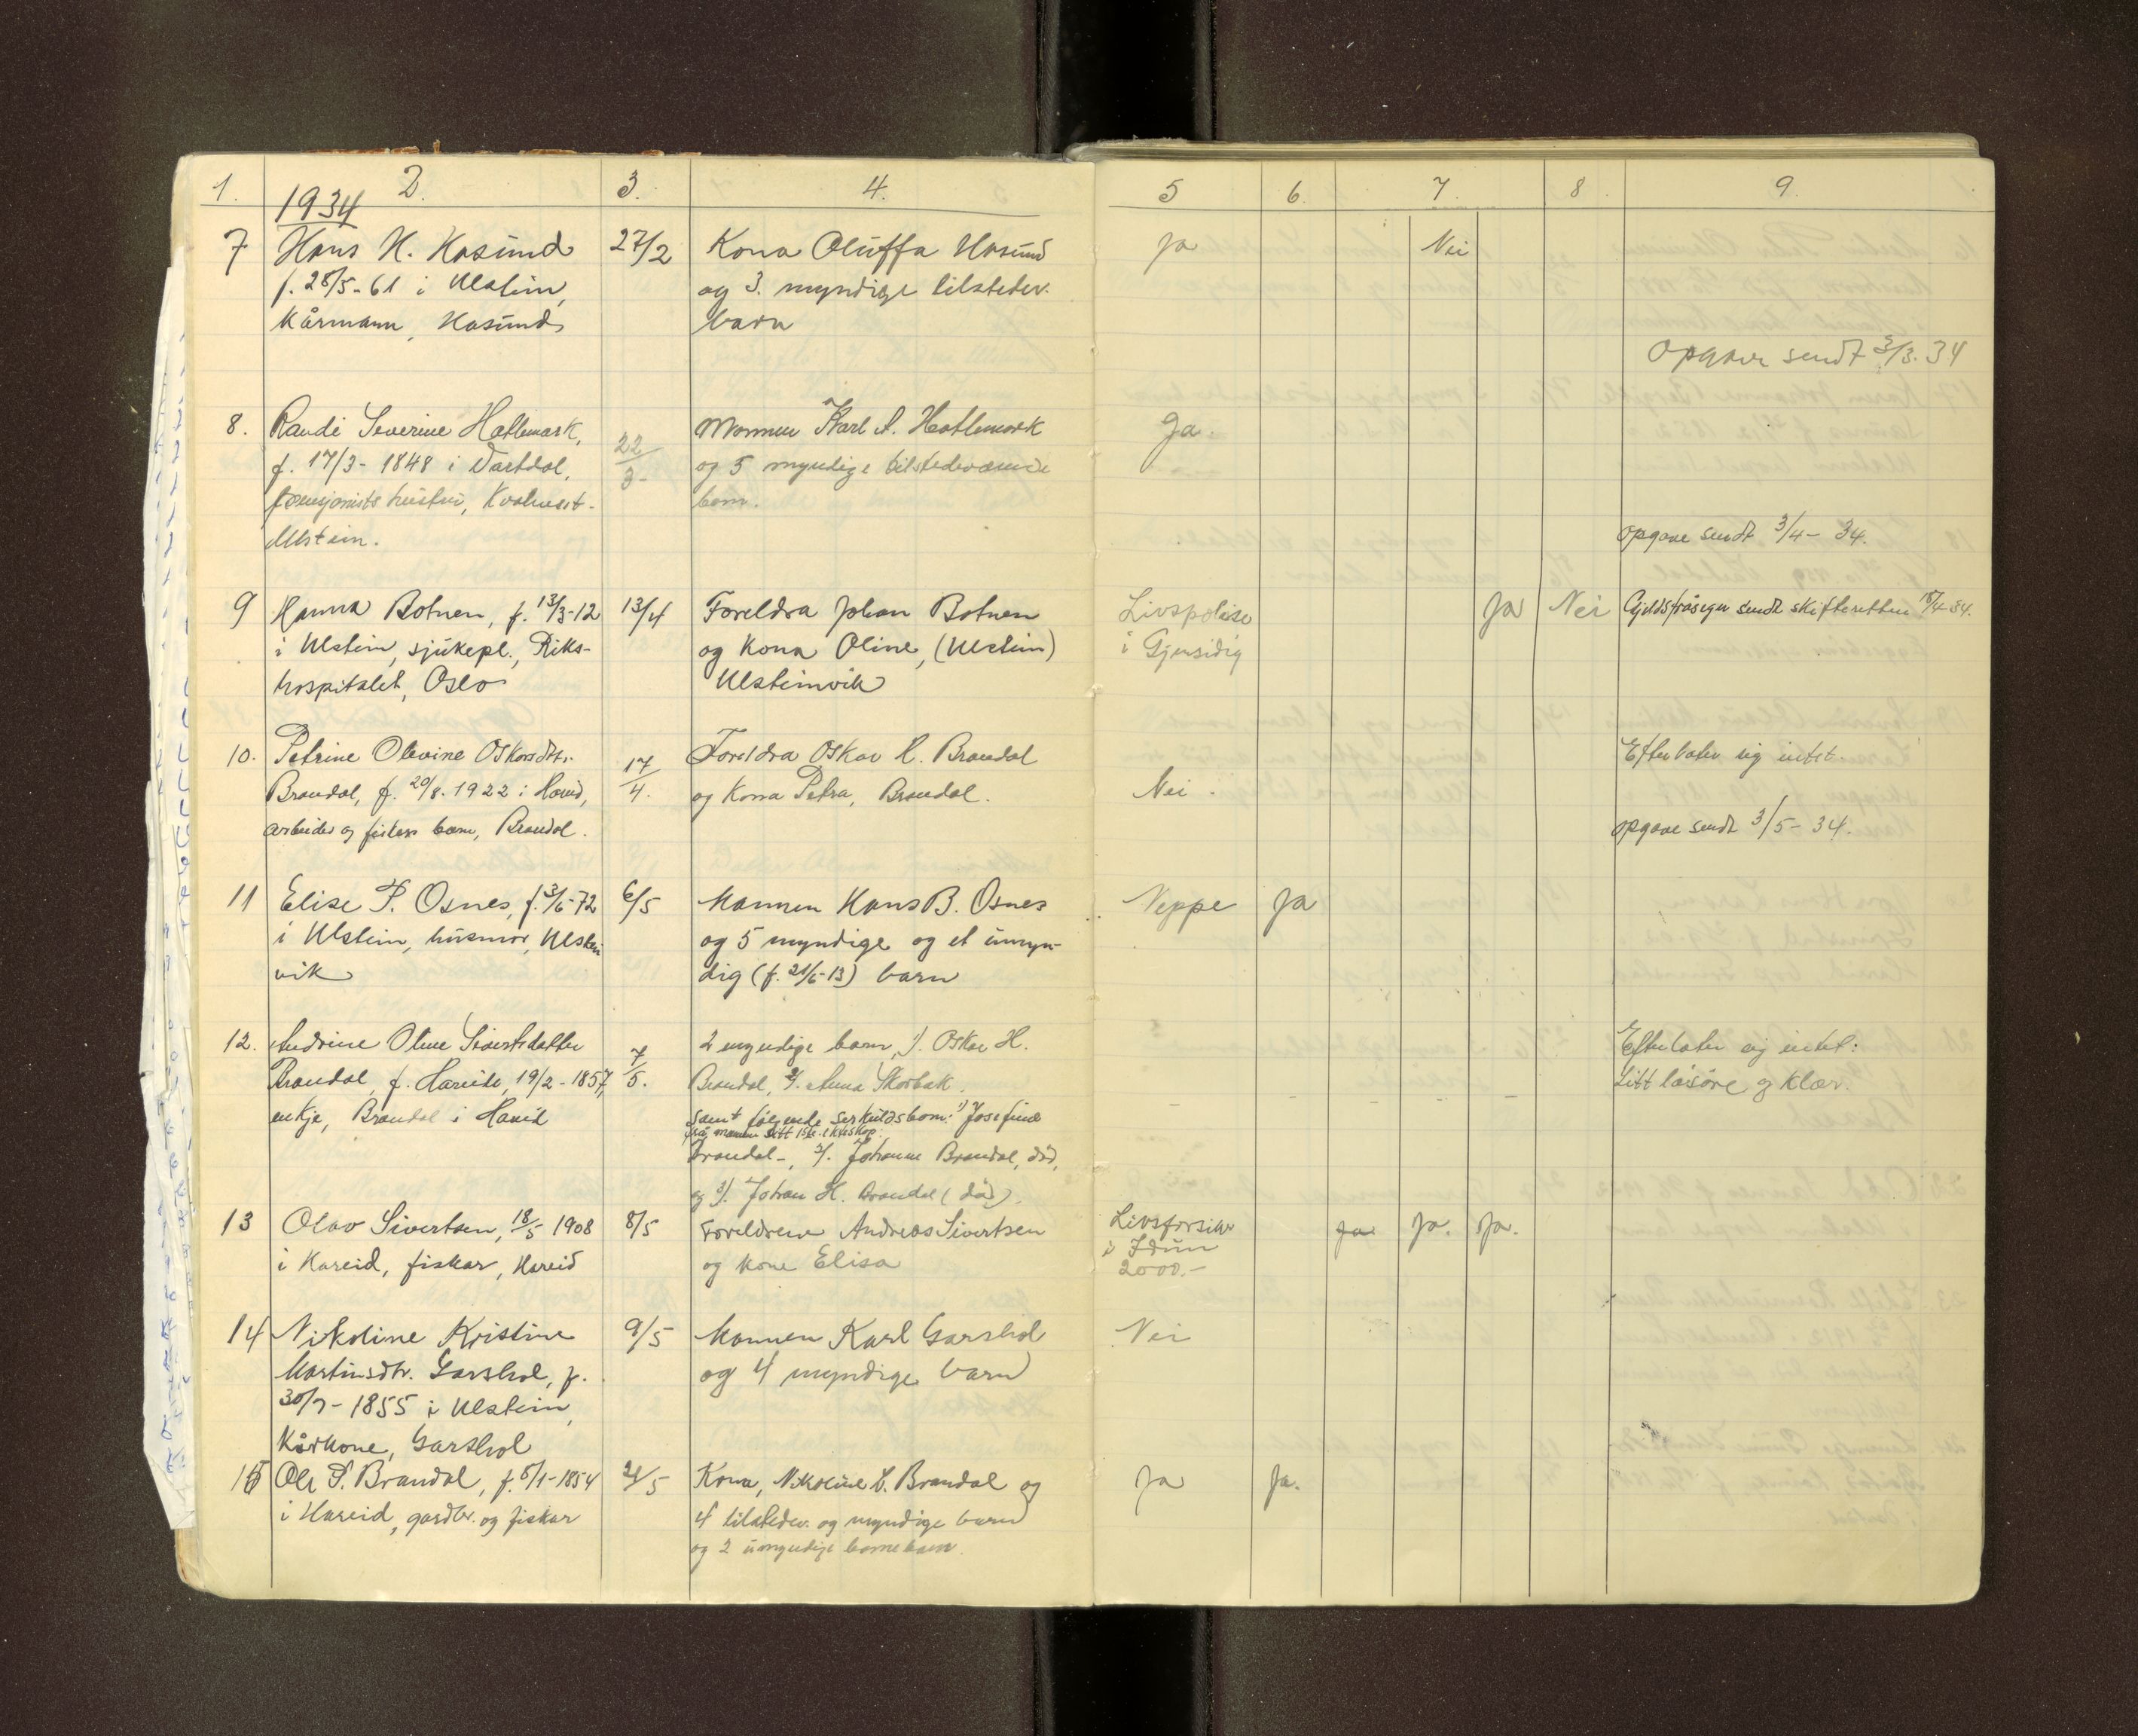 1. 2. 3. 4. 5 6. 7 8. 9.
1934
7 Hans H. Hasund 27/2 Kona Oluffa Hasund Ja Nei
f. 28/5-61 i Ulstein, og 3. myndige tilstedev.
Kårmann, Hasund barn
Opgave sendt 3/3. 34
8. Randi Severine Hatlemark, 22/3- Mannen Karl A. Hatlemark Ja.
f. 17/3-1848 i Vartdal, og 5 myndige tilstedeværende
pensjonists hustru, Kvalnest- born.
Ulstein. opgave sendt 3/4- 34.
9 Hanna Botnen, f. 13/3-12 13/4 Foreldra Johan Botnen Livspolise Ja Nei Gjeldsfråsegn sendt skifteretten 18/4 34.
i Ulstein, sjukepl., Riks- og kona Oline, (Ulstein) i Gjensidig
hospitalet, Oslo Ulsteinvik
10. Petrine Olevine Oskarsdtr. 17/4. Foreldra Oskar H. Brandal Efterlater sig intet.
Brandal, f. 20/8. 1922 i Hareid, og kona Petra, Brandal. Nei.
arbeider og fiskers barn, Brandal. opgave sendt 3/5- 34.
11 Elise P. Osnes, f. 3/6-72 6/5 Mannen Hans B. Osnes Neppe Ja
i Ulstein, husmor, Ulstein og 5 myndige og et umyn-
vik dig (f. 21/6-13) barn
12. Andrine Oline Sivertsdatter 7/5. 2 myndige barn, 1). Oskar H. Efterlater sig intet:
Brandal, f. Hareide, 19/2-1857, Brandal, 2/. Anna Skorbak. Litt lausøre og klær.
enkje, Brandal i Hareid samt følgende serkuldsborn: 1) Josefine
frå mannen sitt 1ste ekteskap
Brandal-, 2/. Johanne Brandal, død,
og 3/. Johan H. Brandal (død).
13 Olav Sivertsen, 18/5 1908 8/5 Foreldrene Andreas Sivertsen Livsforsikr Ja Ja. Ja.
i Hareid, fiskar, Hareid og kone Elisa i Idun
2000.-
14 Nikoline Kristine 9/5 Mannen Karl Garshol Nei
Martinsdtr. Garshol, f. og 4 myndige barn
30/7-1855 i Ulstein,
Kårkone, Garshol
15 Ole P. Brandal, f. 5/1-1854 21/5 Kona, Nikoline L. Brandal og Ja Ja.
i Hareid, gardbr. og fiskar 4 tilstedev. og myndige barn
og 2 umyndige bornebarn.